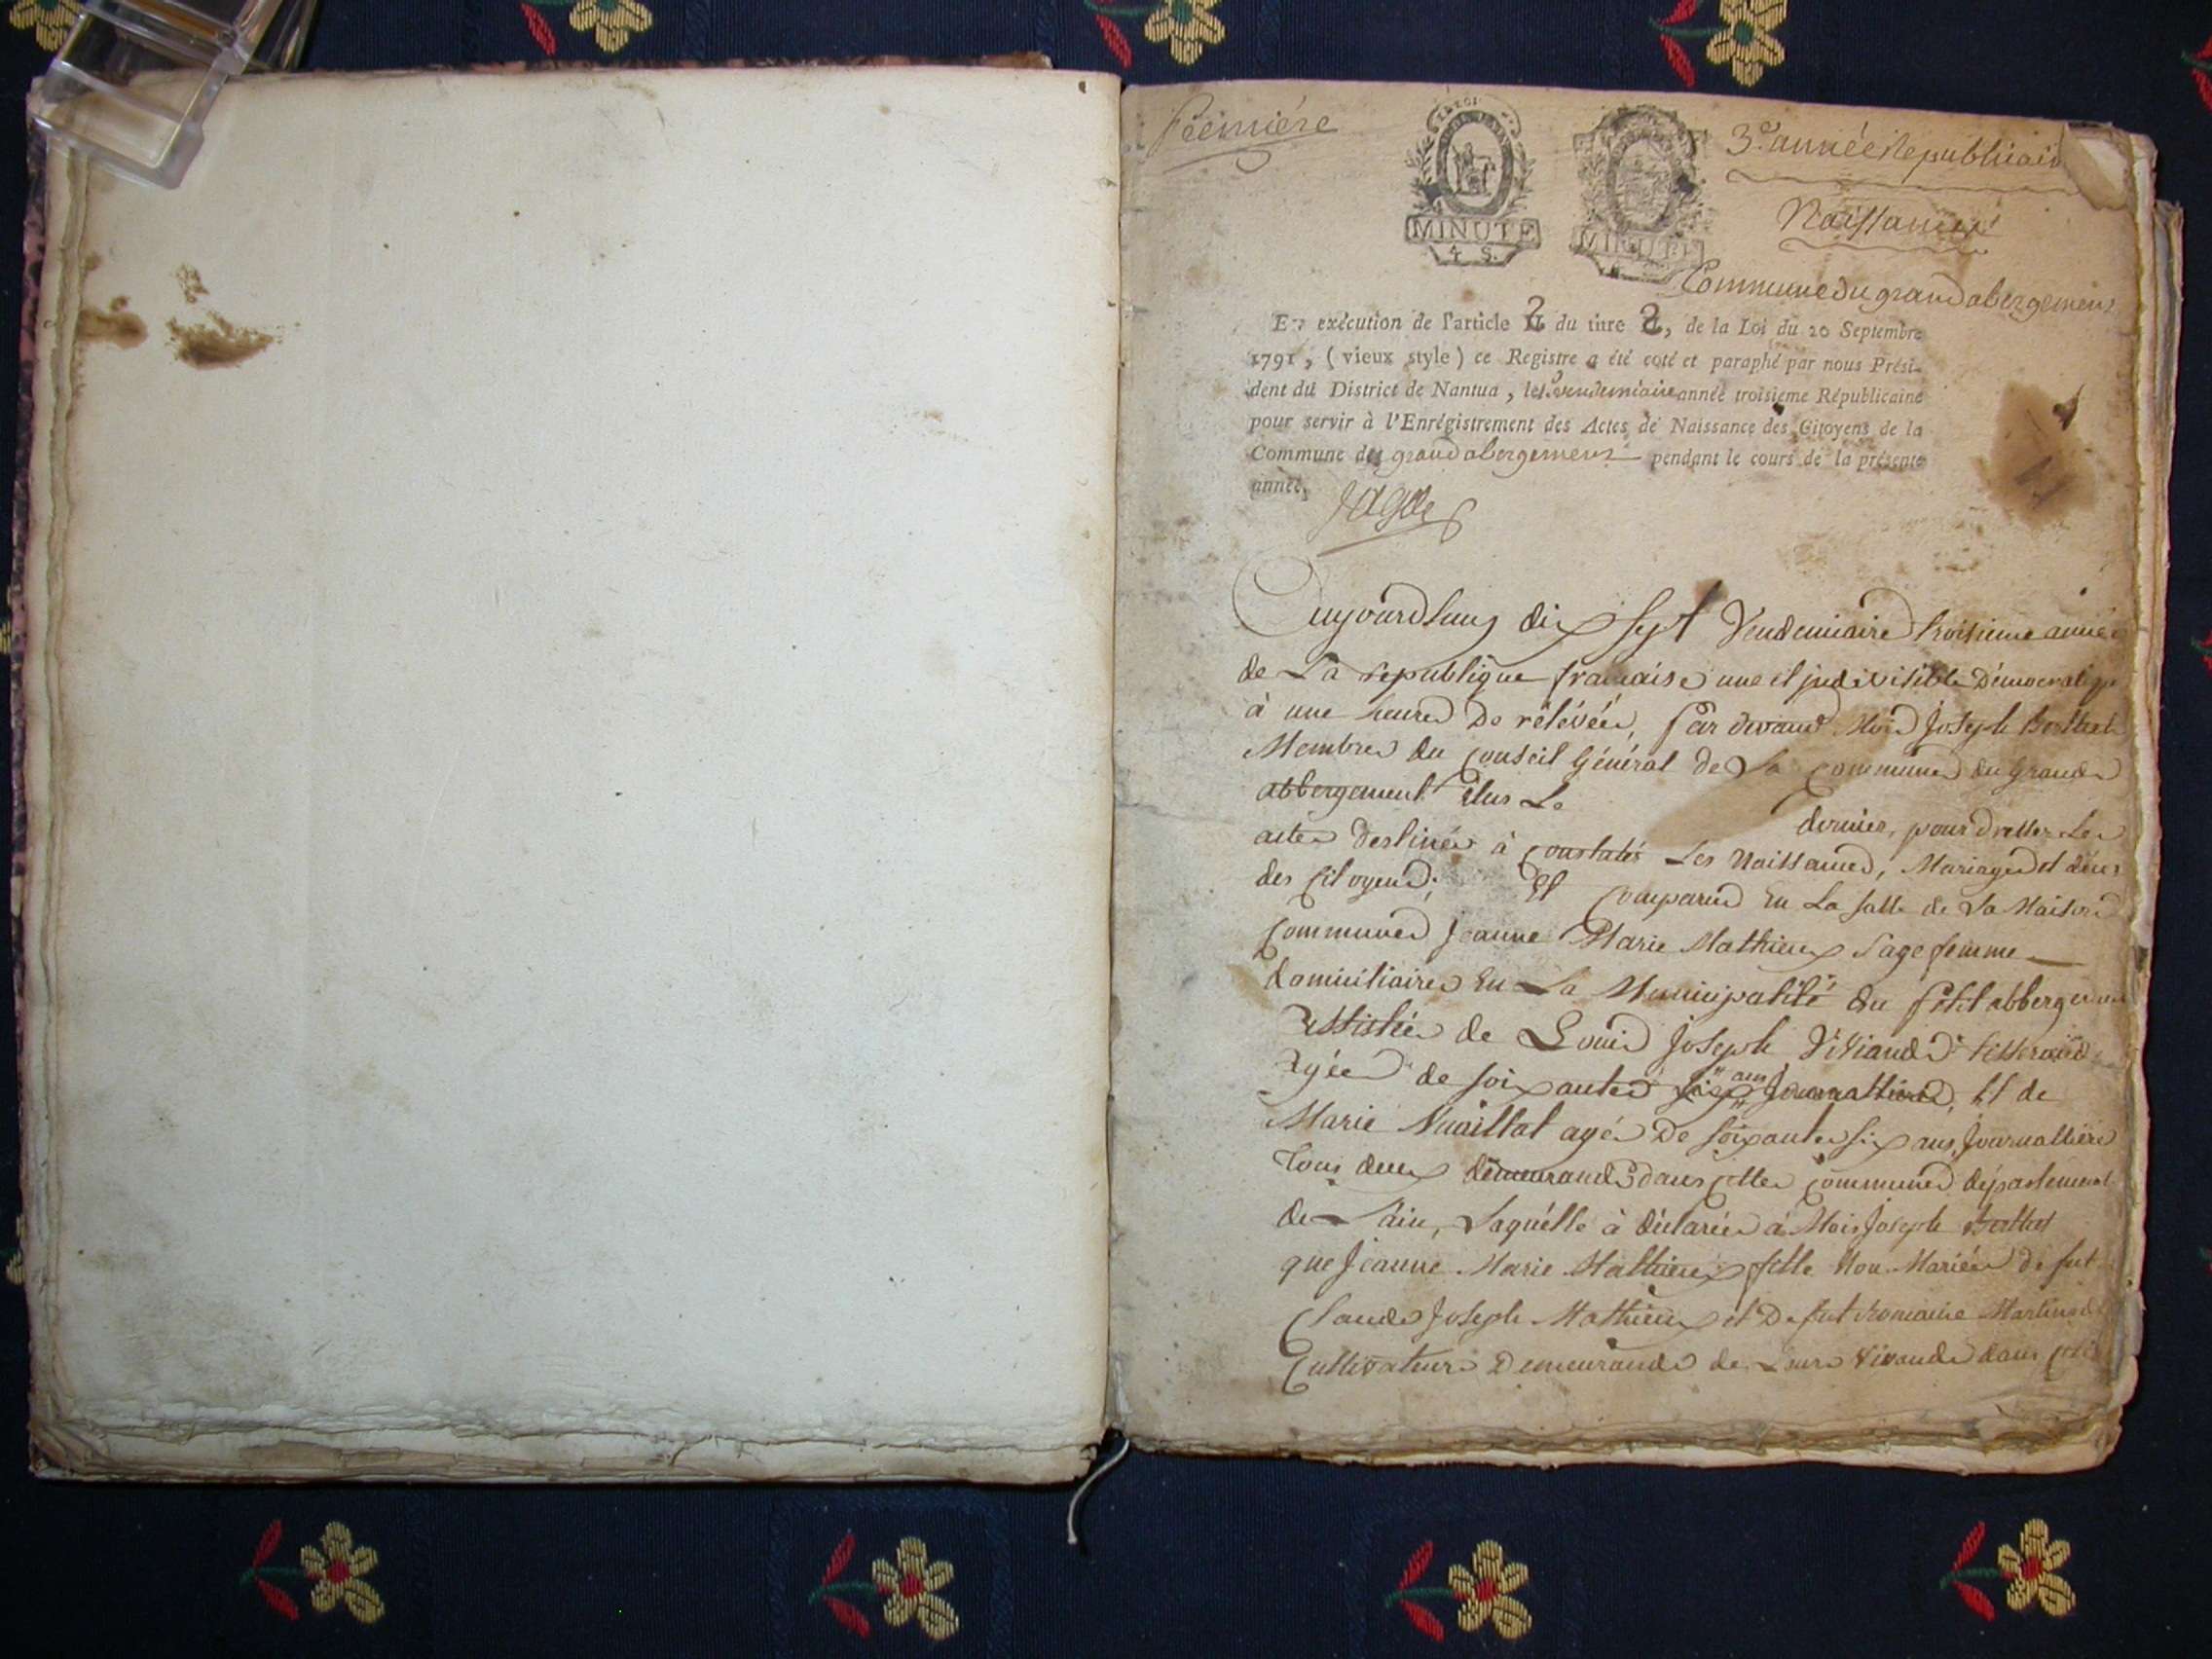 Premiére
3.e année Republicain
MINUTE
4 S.
MINUTE
Naissances
Commune du grand abergement
En exécution de l'article 2 du titre 2, de la Loi du 20 Septembre
1791, (vieux style) ce Registre a été coté et paraphé par nous Prési-
dent du District de Nantua, le vendemiaire année troisieme Républicaine
pour servir à l'Enrégistrement des Actes de Naissance des Citoyens de la
Commune du grand abergement pendant le cours de la présente
année.
Aujourdhuy dix sept Vendemiaire troisieme année
de La republique francaise une et indivisible Démocratique
à une heure De rélévée, par devant Moi Joseph
Membre du Conseil Général de La Commune du Grand
abbergement Elus Le
dernier, pour dresser Les
actes destinés à Constatés Les Naissances, Mariages et déces
des Citoyens; Et Comparue En La salle de La Maison
Commune Jeanne Marie Mathieux sage femme
domiciliaire En La Municipalité du petit abbergement
Assistée de Louis Joseph Viviand tisserand
Agée de soixante six ans, Et de
Marie agée De soixante six ans, Journalliere
Tous deux demeurands dans cette Commune département
de Lain, Laquélle à déclarée à Moi Joseph
que Jeanne Marie Mathieux fille Non Mariée de fut
Claude Joseph Mathieux et De fut Romaine
Cultivateurs Demeurands de Leurs Vivands dans